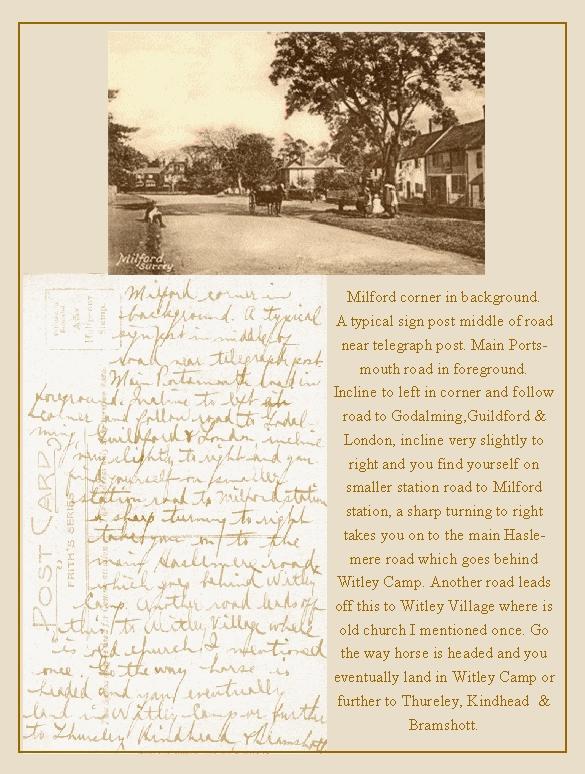 Milford
Surrey
Milford corner in
background. A typical
signpost in middle of
road near telegraph post.
Main Portsmouth Road in
foreground. Incline to left in
corner and follow road to Godal-
ming, Guildford & London, incline
very slightly to right and you
find yourself on smaller
station road to Milford station
a sharp turning to right
takes you on to the
main Haslemere road
which goes behind Witley
Camp. Another road leads off
this to Witley Village where
is old church I mentioned
once. Go the way horse is
headed and you eventually
land in Witley Camp or further
to Thureley, Kindhead & Bramshott
POST CARD
FRITH'S SERIES
Affix
Halfpenny
Stamp
Milford corner in background.
A typical sign post middle of road
near telegraph post. Main Ports-
mouth road in foreground.
Incline to left in corner and follow
road to Godalming,Guildford &
London, incline very slightly to
right and you find yourself on
smaller station road to Milford
station, a sharp turning to right
takes you on to the main Hasle-
mere road which goes behind
Witley Camp. Another road leads
off this to Witley Village where is
old church I mentioned once. Go
the way horse is headed and you
eventually land in Witley Camp or
further to Thureley, Kindhead &
Bramshott.